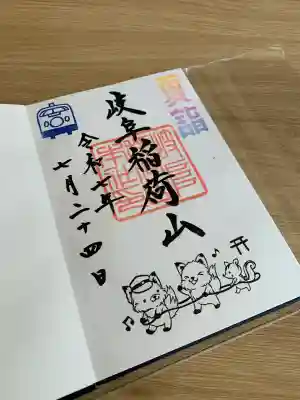 夏詣
岐阜稲荷山
令和七年
七月二十四日